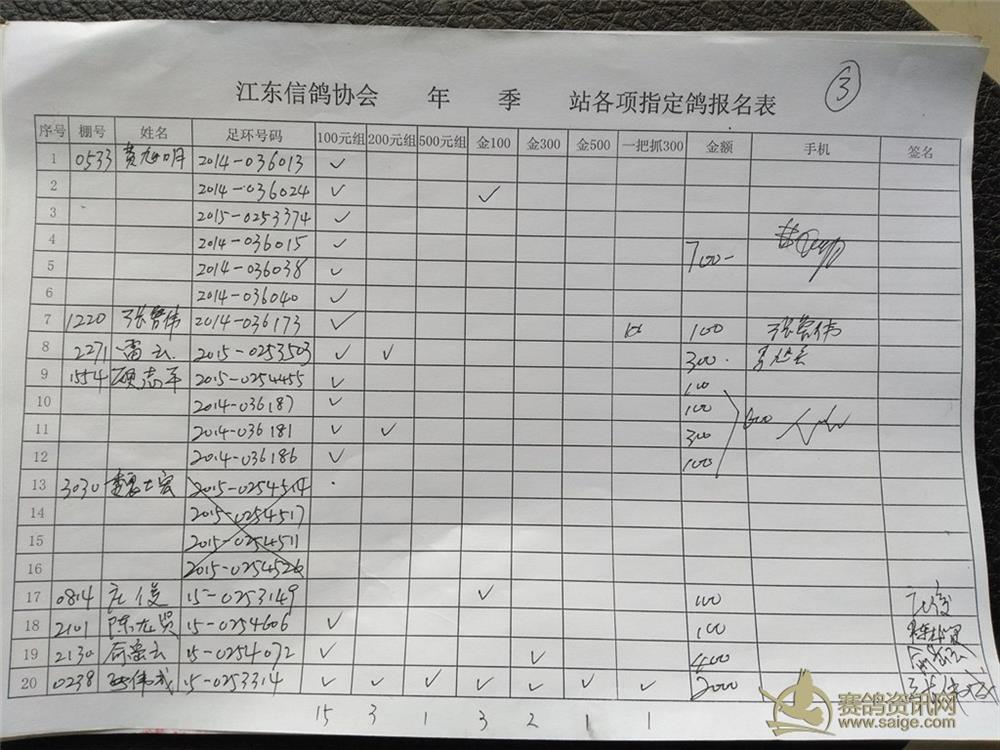 ③
江东信鸽协会 年 季 站各项指定鸽报名表
序号 棚号 姓名 足环号码 100元组 200元组 500元组 金100 金300 金500 一把抓300 金额 手机 签名
1 0533 2014-036013 ✓
2 2014-036024 ✓ ✓
3 2015-0253374 ✓
4 2014-036015 ✓ 700-
5 2014-036038 ✓
6 2014-036040 ✓
7 1220 2014-036173 ✓ 100
8 2271 雷云 2015-0253503 ✓ ✓ 300
9 1554 2015-0254455 ✓ 100
10 2014-036187 ✓ 100
11 2014-036181 ✓ ✓ 300
12 2014-036186 ✓ 100
13 3030 2015-0254514
14 2015-0254517
15 2015-0254511
16 2015-0254526
17 0814 15-0253149 ✓ 100
18 2101 15-0254606 ✓ 100
19 2130 15-0254072 ✓ ✓ 400
20 0238 15-0253314 ✓ ✓ ✓ ✓ ✓ ✓ ✓ 2000
15 3 1 3 2 1 1
赛鸽资讯网
www.saige.com